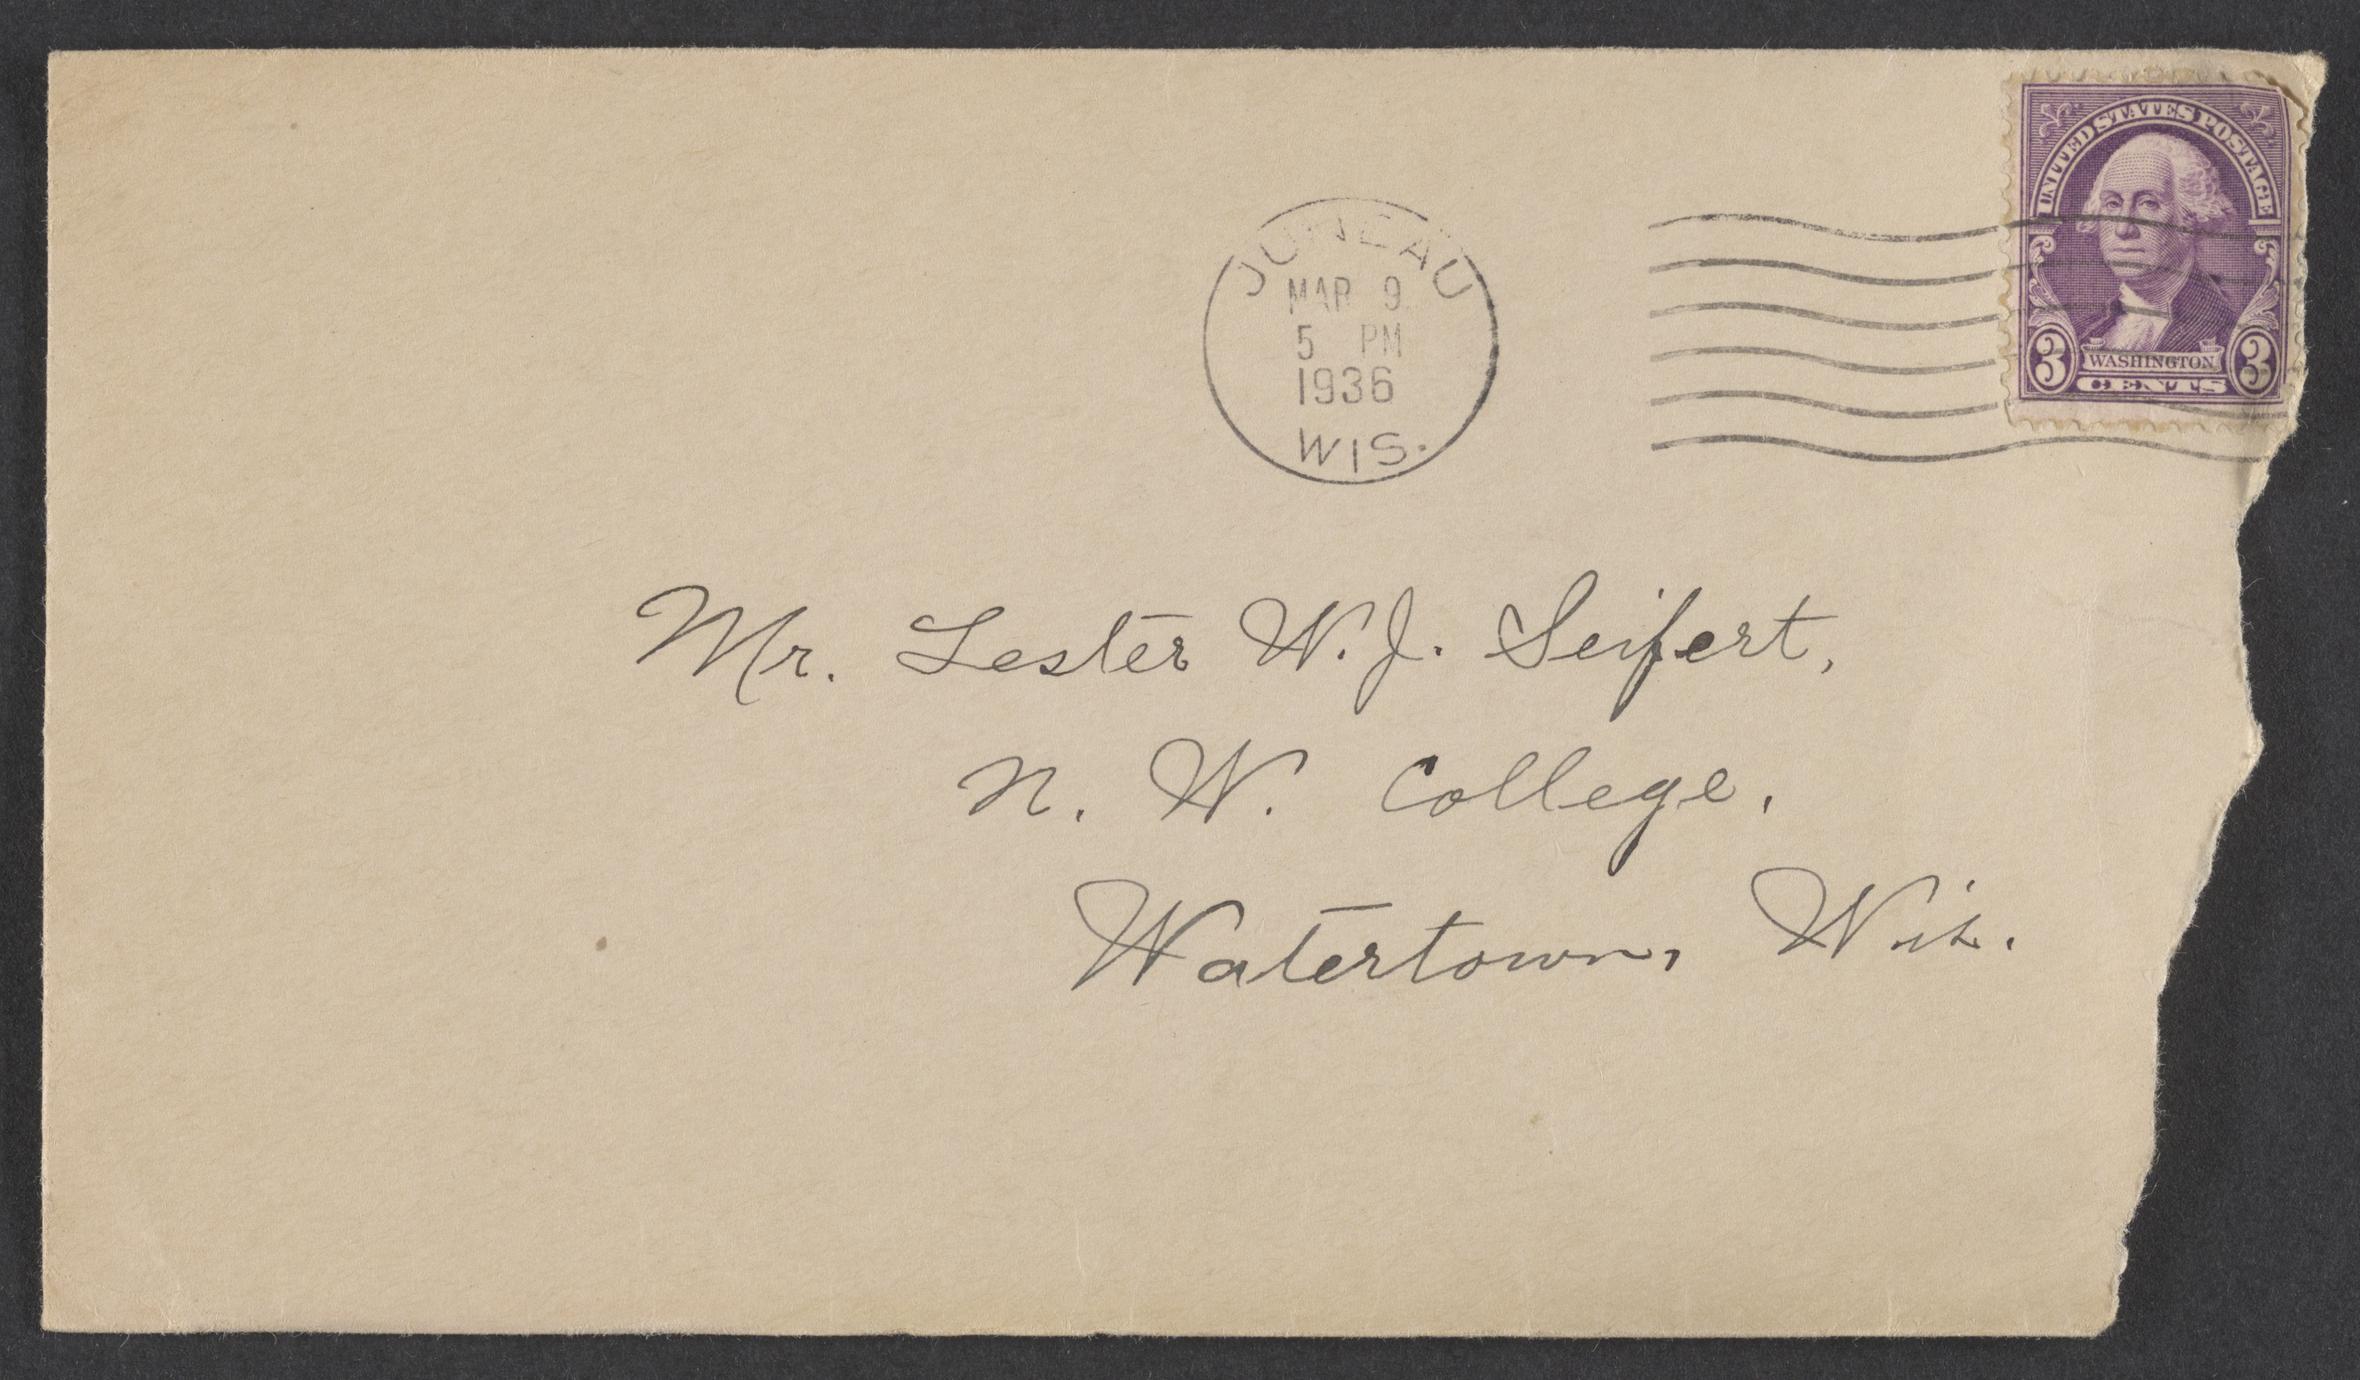 UNITED STATES POSTAGE
3 WASHINGTON 3
CENTS
JUNEAU
MAR 9
5 PM
1936
WIS.
Mr. Lester W. J. Seifert,
N. W. College,
Watertown, Wis.